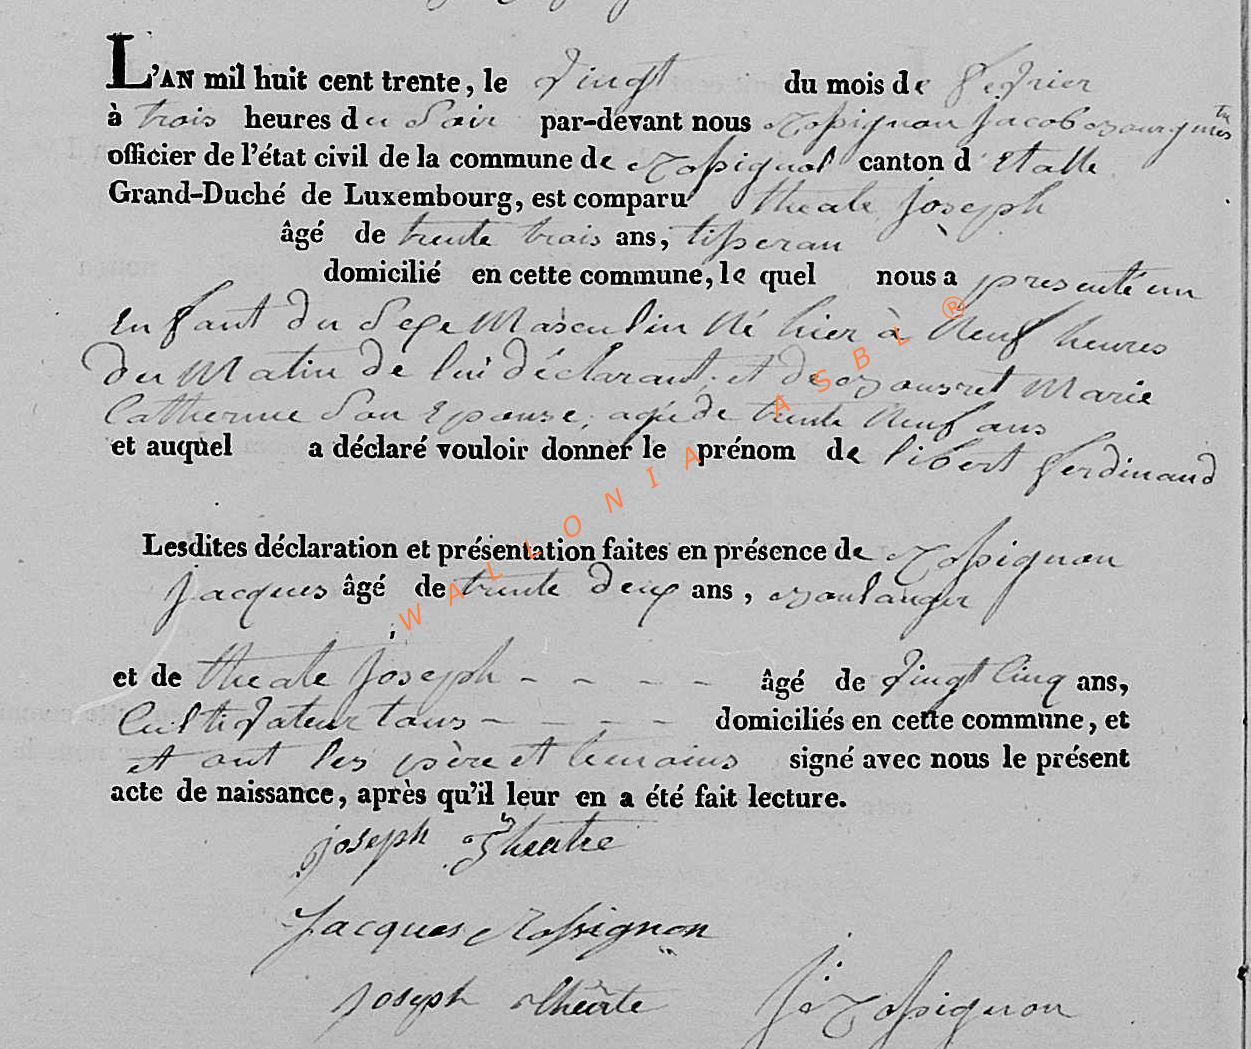 L'AN mil huit cent trente, le vingt du mois de fevrier
à trois heures du Soir par-devant nous Rossignon Jacob Bourgmestre
officier de l'état civil de la commune de Rossignol canton d'Etalle
Grand-Duché de Luxembourg, est comparu theate Joseph
âgé de trente trois ans, tisseran
domicilié en cette commune, le quel nous a presenté un
Enfant du Sexe Masculin Né hier à Neuf heures
du Matin de lui déclarant, et de Marie
Catherine Son Epouse, agée de trente Neuf ans
et auquel a déclaré vouloir donner le prénom de libert ferdinand
Lesdites déclaration et présentation faites en présence de Rossignon
Jacques âgé de trente deux ans, Boulanger
et de theate Joseph - - - - âgé de vingt Cinq ans,
Cultivateur tous - - - - domiciliés en cette commune, et
et ont les père et temoins signé avec nous le présent
acte de naissance, après qu'il leur en a été fait lecture.
joseph Theatre
Jacques Rossignon
joseph theate J: Rossignon
WALLONIA ASBL ®